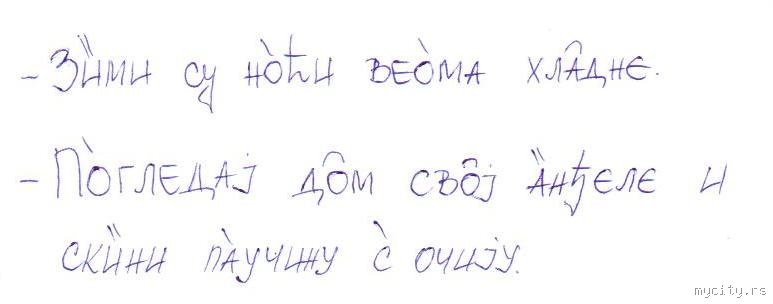 - Зи̏ми су но̀ћи вео̀ма хла̑дне.
- По̀гледај до̑м сво̑ј а̏нђеле и
ски̏ни па̀учину с̀ очију.
mycity.rs